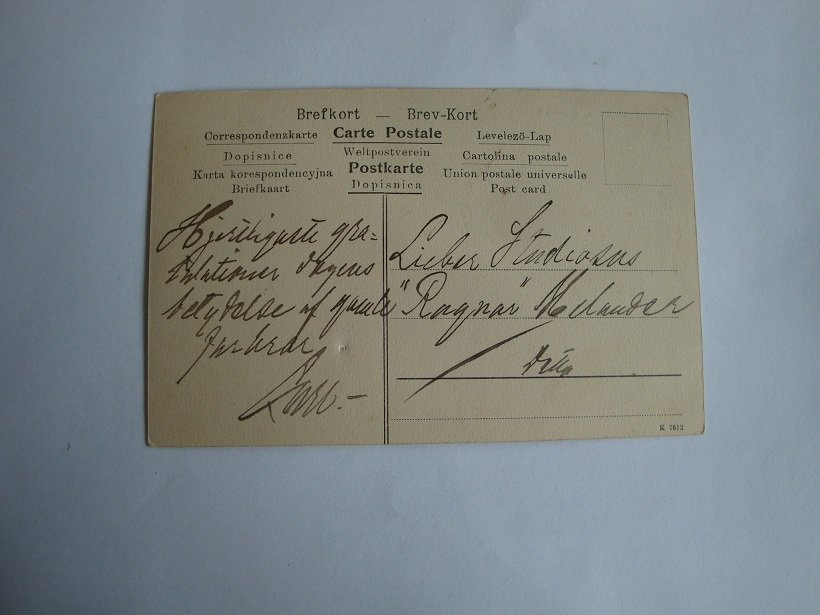 Brefkort — Brev-Kort
Correspondenzkarte Carte Postale Levelezö-Lap
Dopisnice Weltpostverein Cartolina postale
Karta korespondencyjna Postkarte Union postale universelle
Briefkaart Dopisnica Post card
Hjertligaste gra=
tulationer dagens
betydelse af gamle
farbror
Lieber Studiosus
"Ragnar" Melander
K 7612